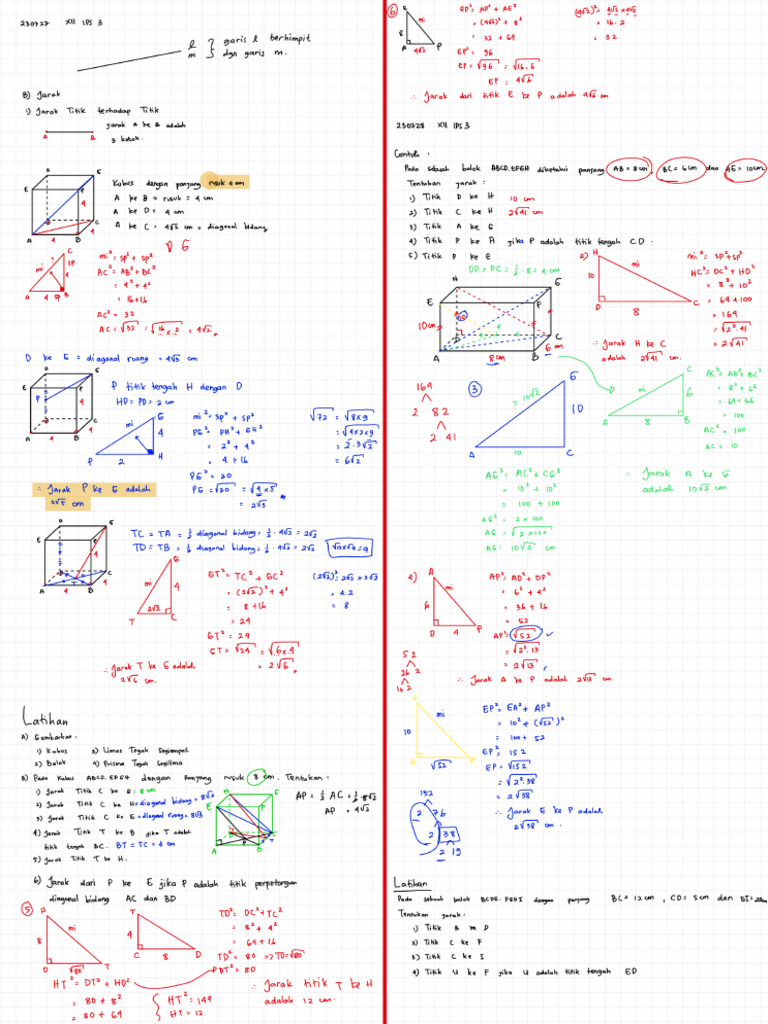 230727 XII IPS 3
l
m
garis l berhimpit
dgn garis m.
B) Jarak
1) Jarak Titik terhadap Titik
A B
jarak A ke B adalah
3 kotak.
Kubus dengan panjang rusuk 4 cm
A ke B = rusuk = 4 cm
A ke D = 4 cm
A ke C = 4√2 cm = diagonal bidang
mi² = sp² + sp²
AC² = AB² + BC²
= 4² + 4²
= 16 + 16
AC² = 32
AC = √32 = √16 x 2 = 4√2
D ke G = diagonal ruang = 4√3 cm
P titik tengah H dengan D
HD = PD = 2 cm
mi² = sp² + sp²
PG² = PH² + GH²
= 2² + 4²
= 4 + 16
PG² = 20
PG = √20 = √4 x 5
= 2√5
√72 = √8x9
= √4x2x9
= 2·3√2
= 6√2
∴ Jarak P ke G adalah
2√5 cm
TC = TA = ½ diagonal bidang = ½ · 4√2 = 2√2
TD = TB = ½ diagonal bidang = ½ · 4√2 = 2√2
√a x √a = a
GT² = TC² + GC²
= (2√2)² + 4²
= 8 + 16
= 24
GT² = 29
GT = √24 = √6x4
= 2√6
(2√2)² = 2√2 x 2√2
= 4.2
= 8
∴ Jarak T ke G adalah
2√6 cm.
Latihan
A) Gambarkan:
1) Kubus 3) Limas Tegak Segiempat
2) Balok 4) Prisma Tegak Segilima
B) Pada Kubus ABCD.EFGH dengan Panjang rusuk 8 cm. Tentukan:
1) Jarak Titik C ke B: 8 cm
2) Jarak Titik C ke H = diagonal bidang = 8√2
3) Jarak Titik C ke E = diagonal ruang = 8√3
4) Jarak Titik T ke B jika T adalah
titik tengah BC. BT = TC = 4 cm
5) Jarak Titik T ke H.
AP = ½ AC = ½·8√2
AP = 4√2
6) Jarak dari P ke E jika P adalah titik perpotongan
diagonal bidang AC dan BD
5
TD² = DC² + TC²
= 8² + 4²
= 64 + 16
TD² = 80 => TD = √80
DT² = 80
HT² = DT² + HD²
= 80 + 8²
= 80 + 64
HT² = 144
HT = 12
∴ Jarak titik T ke H
adalah 12 cm.
6
EP² = AP² + AE²
= (4√2)² + 8²
= 32 + 64
EP² = 96
EP = √96 = √16.6
EP = 4√6
(4√2)² = 4√2 x 4√2
= 16.2
= 32
∴ Jarak dari titik E ke P adalah 4√6 cm
230728 XII IPS 3
Contoh:
Pada sebuah balok ABCD.EFGH diketahui panjang AB = 8cm, BC = 6cm dan AE = 10cm
Tentukan jarak:
1) Titik D ke H 10 cm
2) Titik C ke H 2√41 cm
3) Titik A ke G
4) Titik P ke A jika P adalah titik tengah CD.
5) Titik P ke E
DP = PC = ½·8 = 4 cm
2)
mi² = sp² + sp²
HC² = DC² + HD²
= 8² + 10²
= 64 + 100
= 164
= √2²·41
= 2√41
∴ Jarak H ke C
adalah 2√41 cm.
164
2 82
2 41
3
AC² = AB² + BC²
= 8² + 6²
= 64 + 36
= 100
AC² = 100
AC = 10
AG² = AC² + CG²
= 10² + 10²
= 100 + 100
AG² = 2 x 100
AG = √2x100
AG = 10√2 cm
∴ Jarak A ke G
adalah 10√2 cm
4)
AP² = AD² + DP²
= 6² + 4²
= 36 + 16
= 52
AP = √52
= √2²·13
= 2√13
∴ Jarak A ke P adalah 2√13 cm
52
26 2
13 2
EP² = EA² + AP²
= 10² + (√52)²
= 100 + 52
EP² = 152
EP = √152
= √2²·38
= 2√38
∴ Jarak E ke P adalah
2√38 cm.
152
2 76
2 38
2 19
Latihan
Pada sebuah balok BCDE.FGHI dengan panjang BC = 12 cm, CD = 5 cm dan
Tentukan jarak:
1) Titik B ke D
2) Titik C ke F
3) Titik C ke I
4) Titik U ke F jika U adalah titik tengah ED